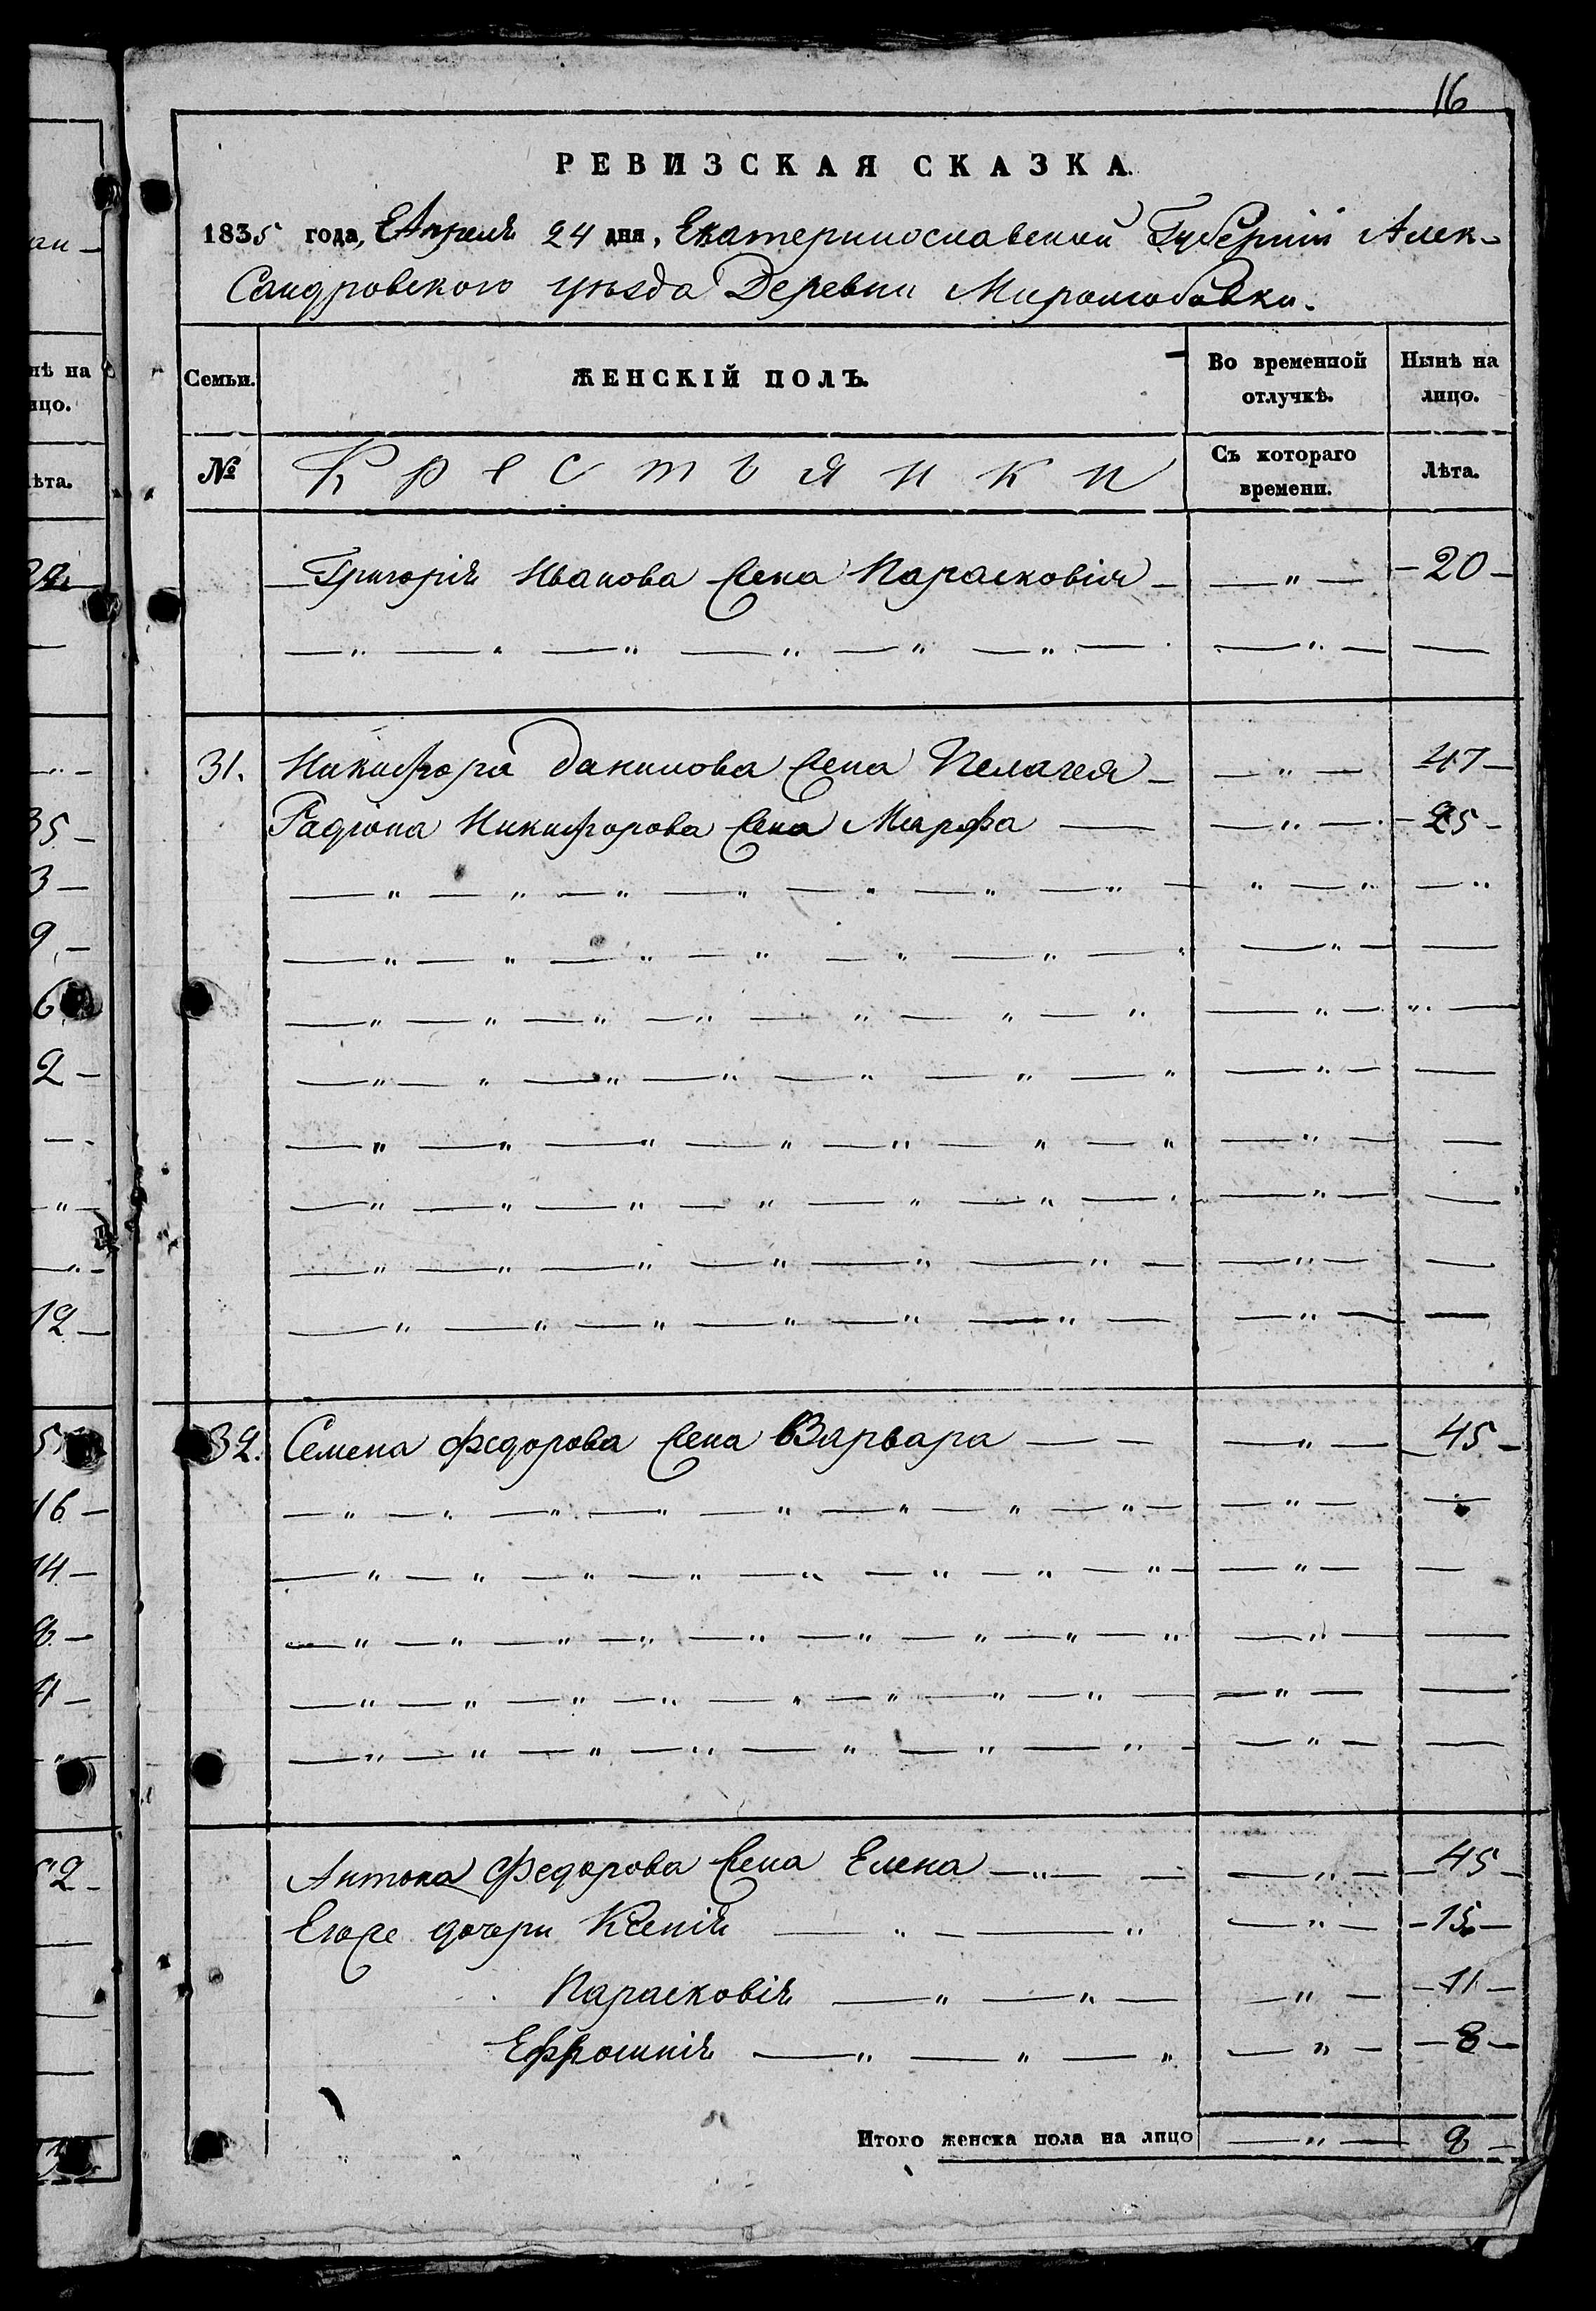 16
РЕВИЗСКАЯ СКАЗКА.
1835 года, Апреля 24 дня, Екатеринославской Губерніи Алек-
сандровского уѣзда Деревни Миролюбовки.
Семьи. ЖЕНСКІЙ ПОЛЪ. Во временной отлучкѣ. Нынѣ на лицо.
№ Крестьянки Съ котораго времени. Лѣта.
Григорія Иванова жена Парасковія — " — 20
31. Никифора Данилова жена Пелагея — " — 47
Радіона Никифорова жена Марфа — " — 25
32. Семена Федорова жена Варвара — " — 45
Антона Федорова жена Елена — " — 45
Егоже дочери Ксенія — " — 15
Парасковія — " — 11
Ефросинія — " — 8
Итого женска пола на лицо — " — 8